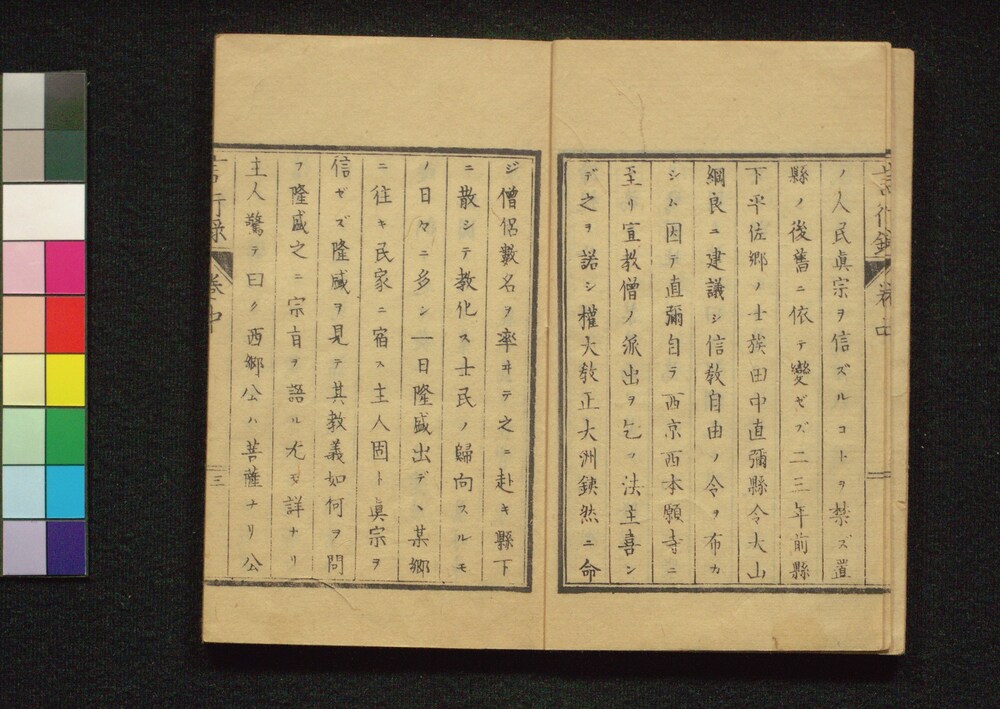 言行錄 卷中
ノ人民眞宗ヲ信ズルコトヲ禁ズ置
縣ノ後舊ニ依テ變ゼズ二三年前縣
下平佐郷ノ士族田中直彌縣令大山
綱良ニ建議シ信敎自由ノ令ヲ布カ
シム因テ直彌自ラ西京西本願寺ニ
至リ宣教僧ノ派出ヲ乞フ法主喜ン
デ之ヲ諾シ權大敎正大洲鉄然ニ命
二
ジ僧侶數名ヲ率ヰテ之ニ赴キ縣下
ニ散シテ敎化ス士民ノ歸向スルモ
ノ日々ニ多シ一日隆盛出デヽ某郷
ニ往キ民家ニ宿ス主人固ト眞宗ヲ
信ゼズ隆盛ヲ見テ其教義如何ヲ問
フ隆盛之ニ宗旨ヲ語ル尤モ詳ナリ
主人驚テ曰ク西郷公ハ菩薩ナリ公
言行錄 卷中
三